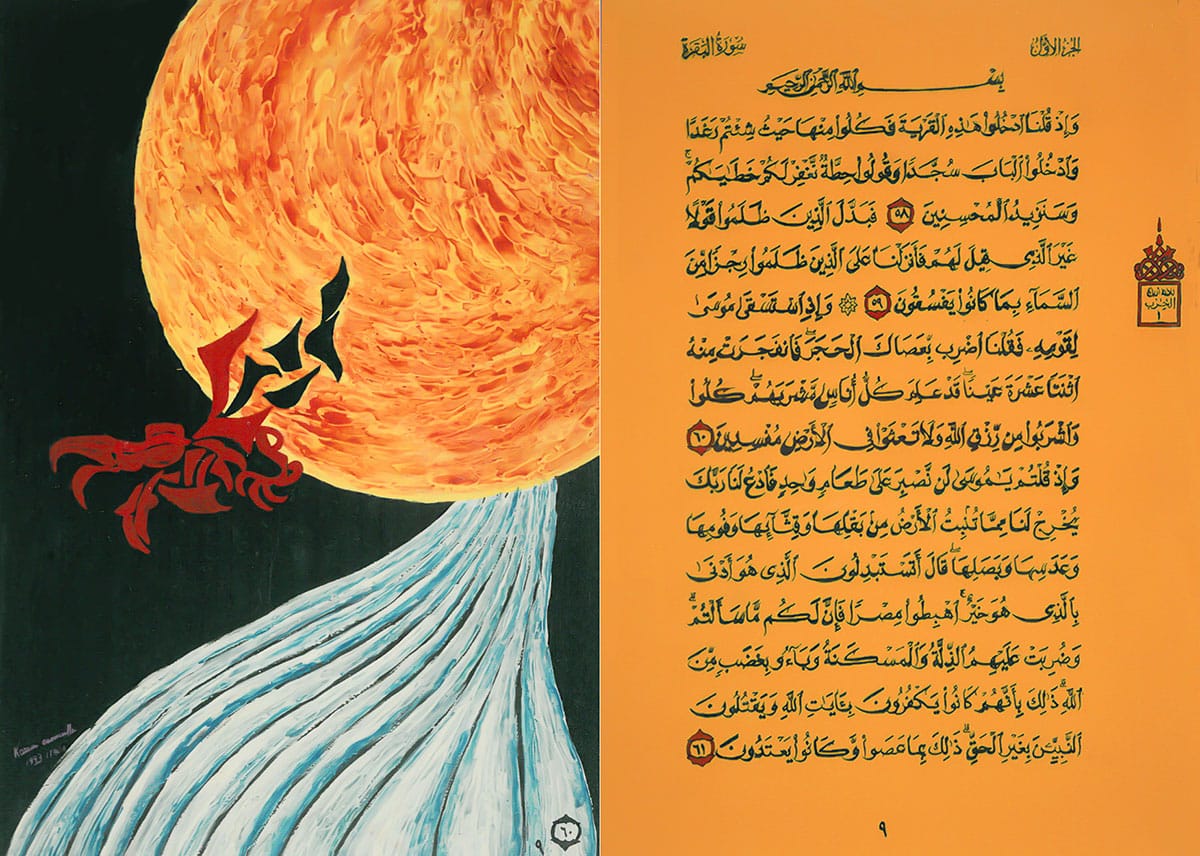 الجزء الأول
سورة البقرة
بِسْمِ اللَّهِ الرَّحْمَٰنِ الرَّحِيمِ
وَإِذْ قُلْنَا ادْخُلُوا هَٰذِهِ الْقَرْيَةَ فَكُلُوا مِنْهَا حَيْثُ شِئْتُمْ رَغَدًا
وَادْخُلُوا الْبَابَ سُجَّدًا وَقُولُوا حِطَّةٌ نَّغْفِرْ لَكُمْ خَطَٰيَٰكُمْ ۚ
وَسَنَزِيدُ الْمُحْسِنِينَ ٥٨ فَبَدَّلَ الَّذِينَ ظَلَمُوا قَوْلًا
غَيْرَ الَّذِي قِيلَ لَهُمْ فَأَنزَلْنَا عَلَى الَّذِينَ ظَلَمُوا رِجْزًا مِّنَ
السَّمَاءِ بِمَا كَانُوا يَفْسُقُونَ ٥٩ ۞ وَإِذِ اسْتَسْقَىٰ مُوسَىٰ
لِقَوْمِهِ فَقُلْنَا اضْرِب بِّعَصَاكَ الْحَجَرَ ۖ فَانفَجَرَتْ مِنْهُ
اثْنَتَا عَشْرَةَ عَيْنًا ۖ قَدْ عَلِمَ كُلُّ أُنَاسٍ مَّشْرَبَهُمْ ۖ كُلُوا
وَاشْرَبُوا مِن رِّزْقِ اللَّهِ وَلَا تَعْثَوْا فِي الْأَرْضِ مُفْسِدِينَ ٦٠
وَإِذْ قُلْتُمْ يَٰمُوسَىٰ لَن نَّصْبِرَ عَلَىٰ طَعَامٍ وَٰحِدٍ فَادْعُ لَنَا رَبَّكَ
يُخْرِجْ لَنَا مِمَّا تُنبِتُ الْأَرْضُ مِن بَقْلِهَا وَقِثَّائِهَا وَفُومِهَا
وَعَدَسِهَا وَبَصَلِهَا ۖ قَالَ أَتَسْتَبْدِلُونَ الَّذِي هُوَ أَدْنَىٰ
بِالَّذِي هُوَ خَيْرٌ ۚ اهْبِطُوا مِصْرًا فَإِنَّ لَكُم مَّا سَأَلْتُمْ ۗ
وَضُرِبَتْ عَلَيْهِمُ الذِّلَّةُ وَالْمَسْكَنَةُ وَبَاءُو بِغَضَبٍ مِّنَ
اللَّهِ ۗ ذَٰلِكَ بِأَنَّهُمْ كَانُوا يَكْفُرُونَ بِـَٔايَٰتِ اللَّهِ وَيَقْتُلُونَ
النَّبِيِّـنَ بِغَيْرِ الْحَقِّ ۗ ذَٰلِكَ بِمَا عَصَوا وَّكَانُوا يَعْتَدُونَ ٦١
ثلاثة أرباع
الحزب
١
٩
1993
٦٠
٩